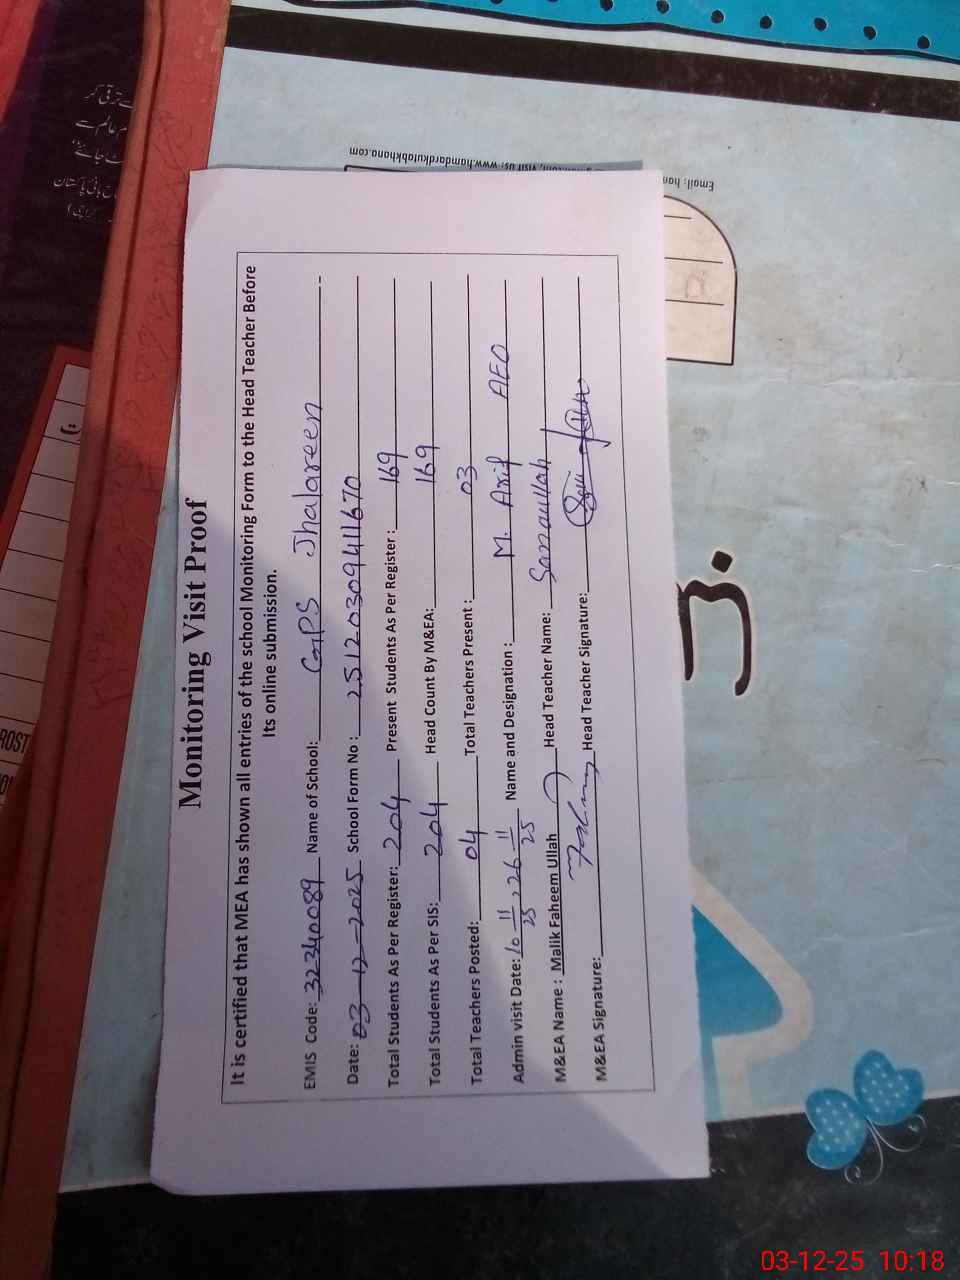 Monitoring Visit Proof
It is certified that MEA has shown all entries of the school Monitoring Form to the Head Teacher Before
Its online submission.
EMIS Code: 32340089 Name of School: GPS Jhalareen
Date: 03-12-2025 School Form No: 2512030941670
Total Students As Per Register: 204 Present Students As Per Register: 169
Total Students As Per SIS: 204 Head Count By M&EA: 169
Total Teachers Posted: 04 Total Teachers Present: 03
Admin visit Date: 10 11/25, 26 11/25 Name and Designation: M. Arif AEO
M&EA Name: Malik Faheem Ullah Head Teacher Name: Sanaullah
M&EA Signature: Head Teacher Signature:
visit us: www.hamdardkutabkhana.com
Email: ham
03-12-25 10:18